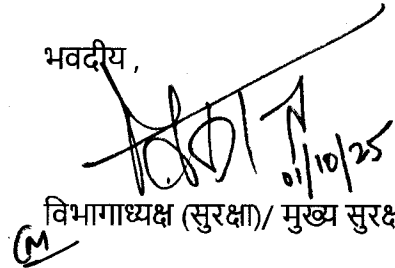 भवदीय ,
01/10/25
विभागाध्यक्ष (सुरक्षा)/ मुख्य सुरक्ष
CM